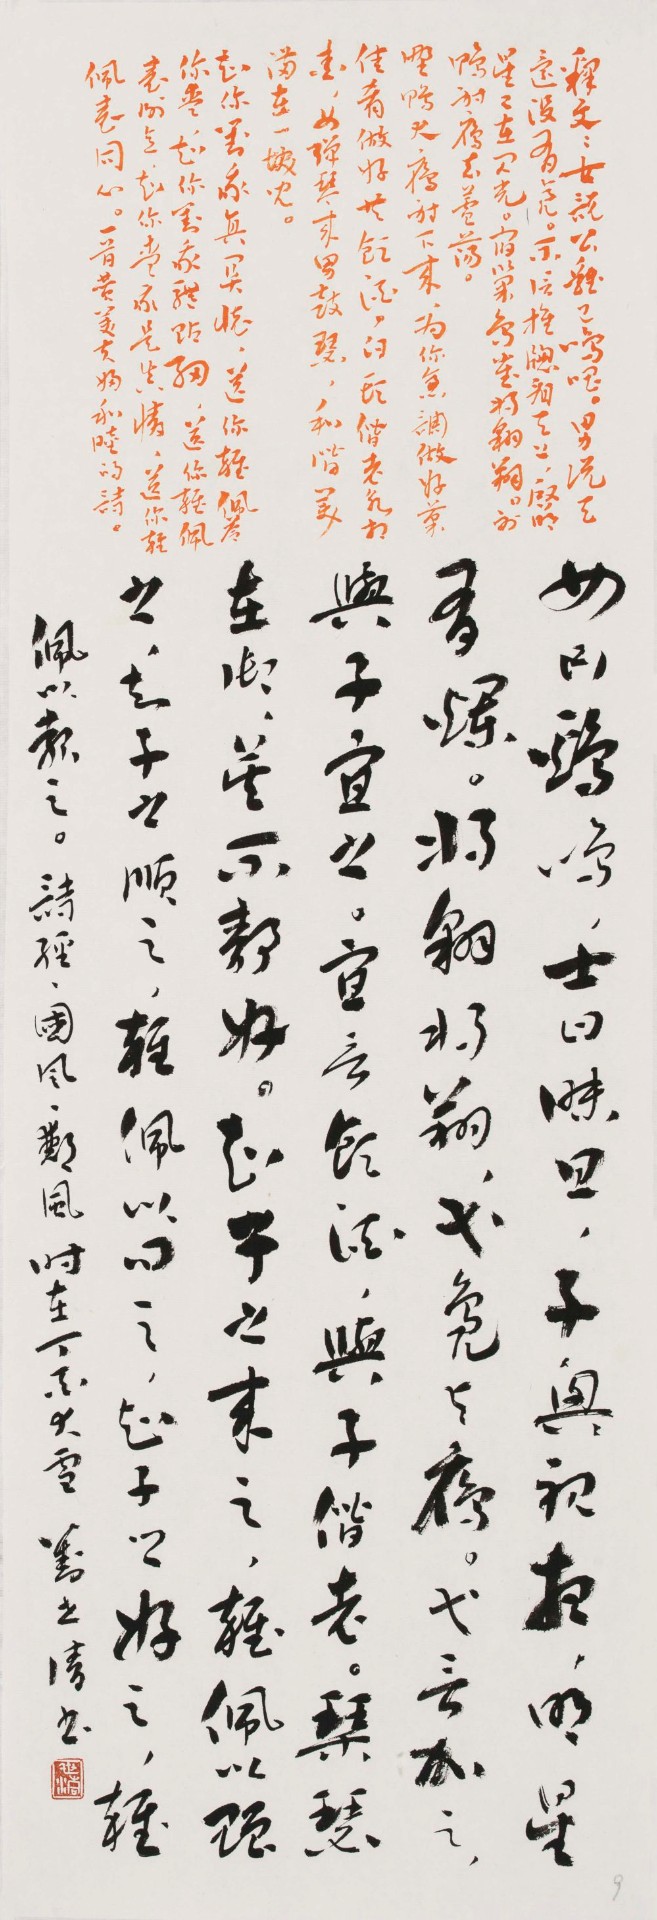 釋文：女說公雞已鳴唱。男说天
還没有亮。不信推窗看天上，啟明
星已在闪光。宿巢鳥雀将翱翔。射
鴨射雁去蘆蕩。
野鴨大雁射下来，为你烹調做好菜
佳肴做好共飲酒，白頭偕老永相
愛，女彈琴来男鼓瑟，和谐美
满在一塊兒。
知你對我真関懷，送你雜佩答
你愛，知你對我體貼細，送你雜佩
表謝意，知你愛我是真情，送你雜
佩表同心。一首贊美夫婦和睦的詩。
女曰鷄鳴，士曰昧旦，子興視夜，明星
有爛。将翱将翔，弋鳧与雁。弋言加之，
與子宜之。宜言飲酒，與子偕老。琴瑟
在御，莫不静好。知子之来之，雜佩以贈
之，知子之順之，雜佩以问之，知子之好之，雜
佩以報之。詩經、國風、鄭風 时在丁亥大雪